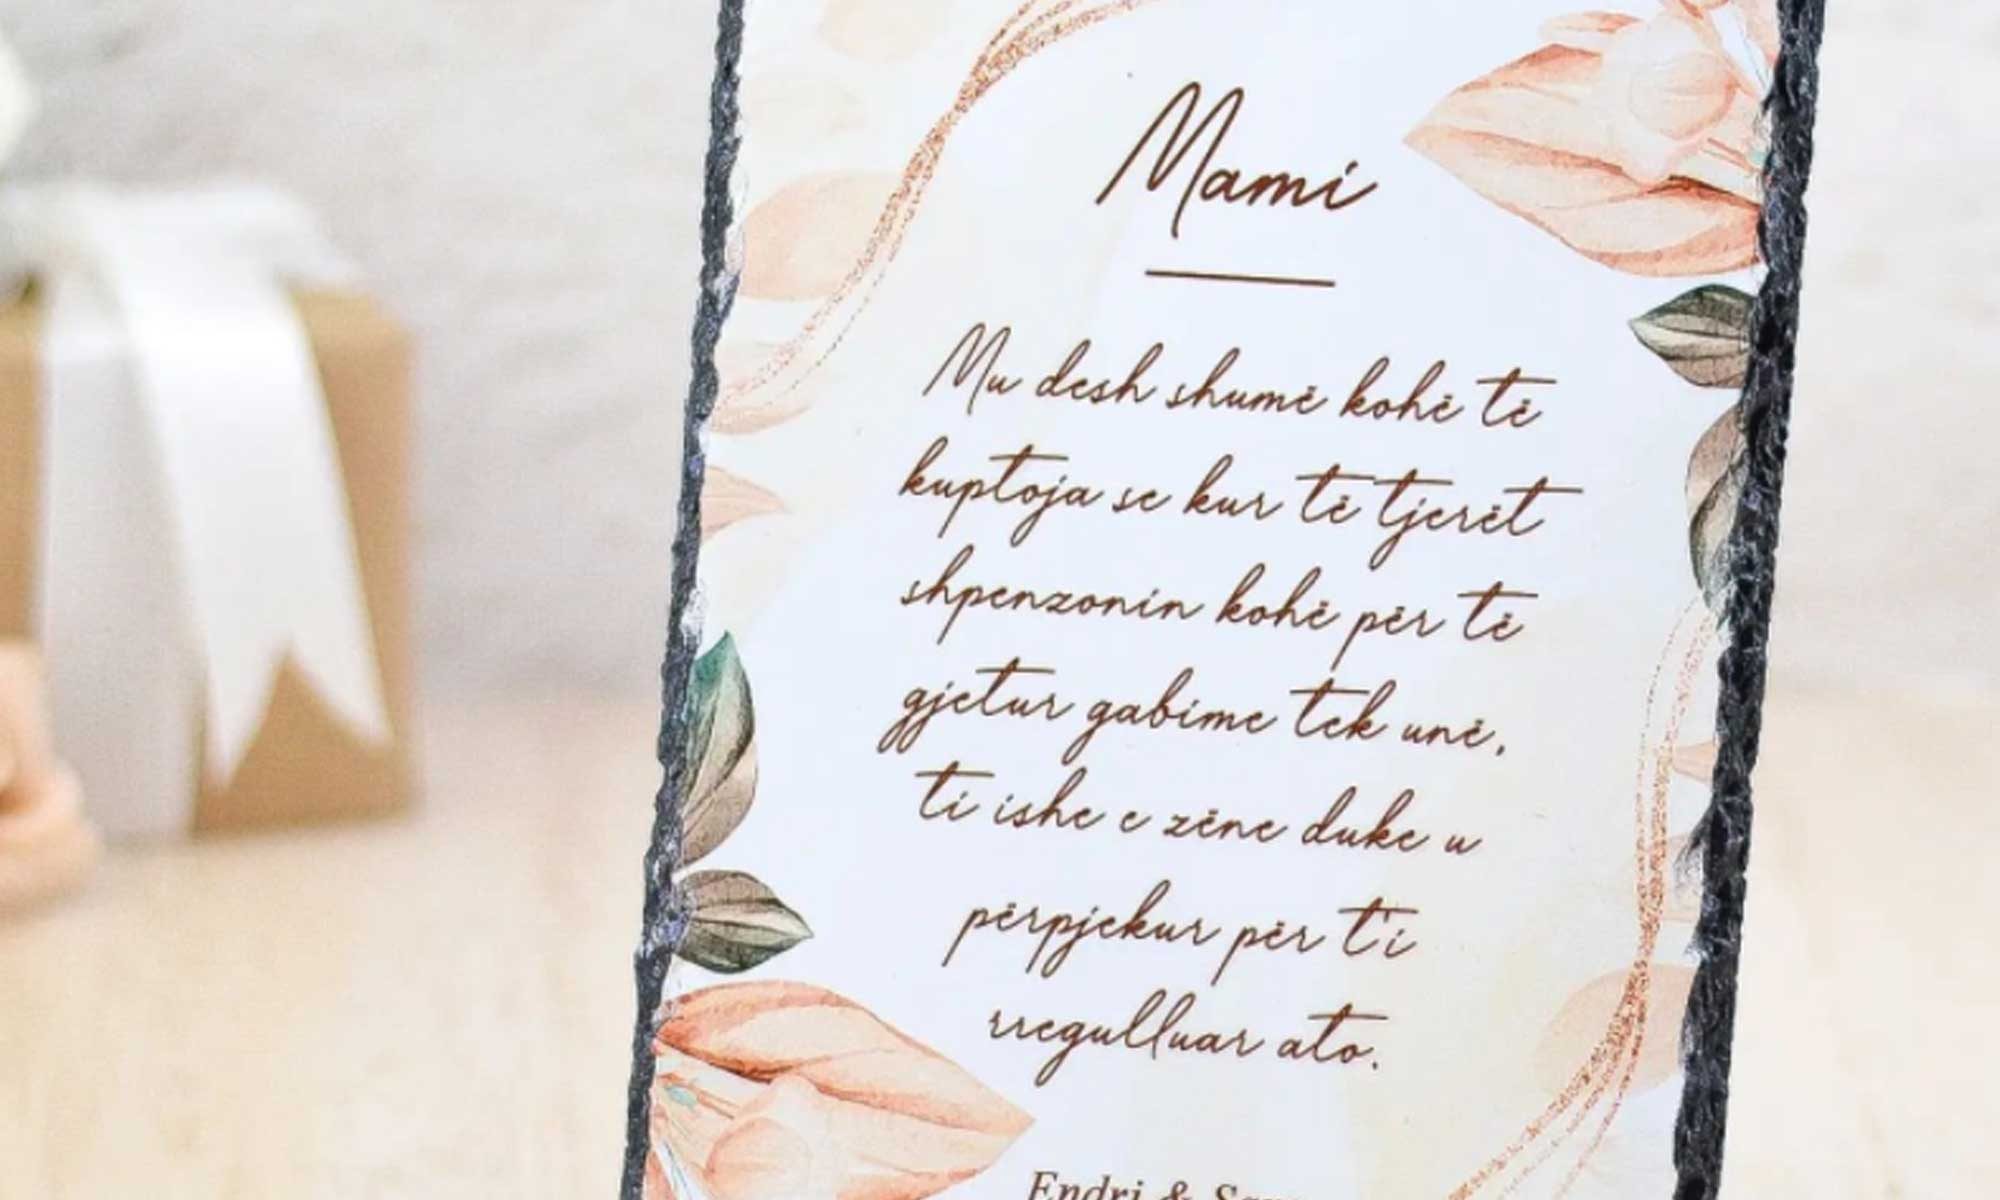 Mami
Mu desh shumë kohë të
kuptoja se kur të tjerët
shpenzonin kohë për të
gjetur gabime tek unë,
ti ishe e zëne duke u
përpjekur për t'i
rregulluar ato.
Endri &